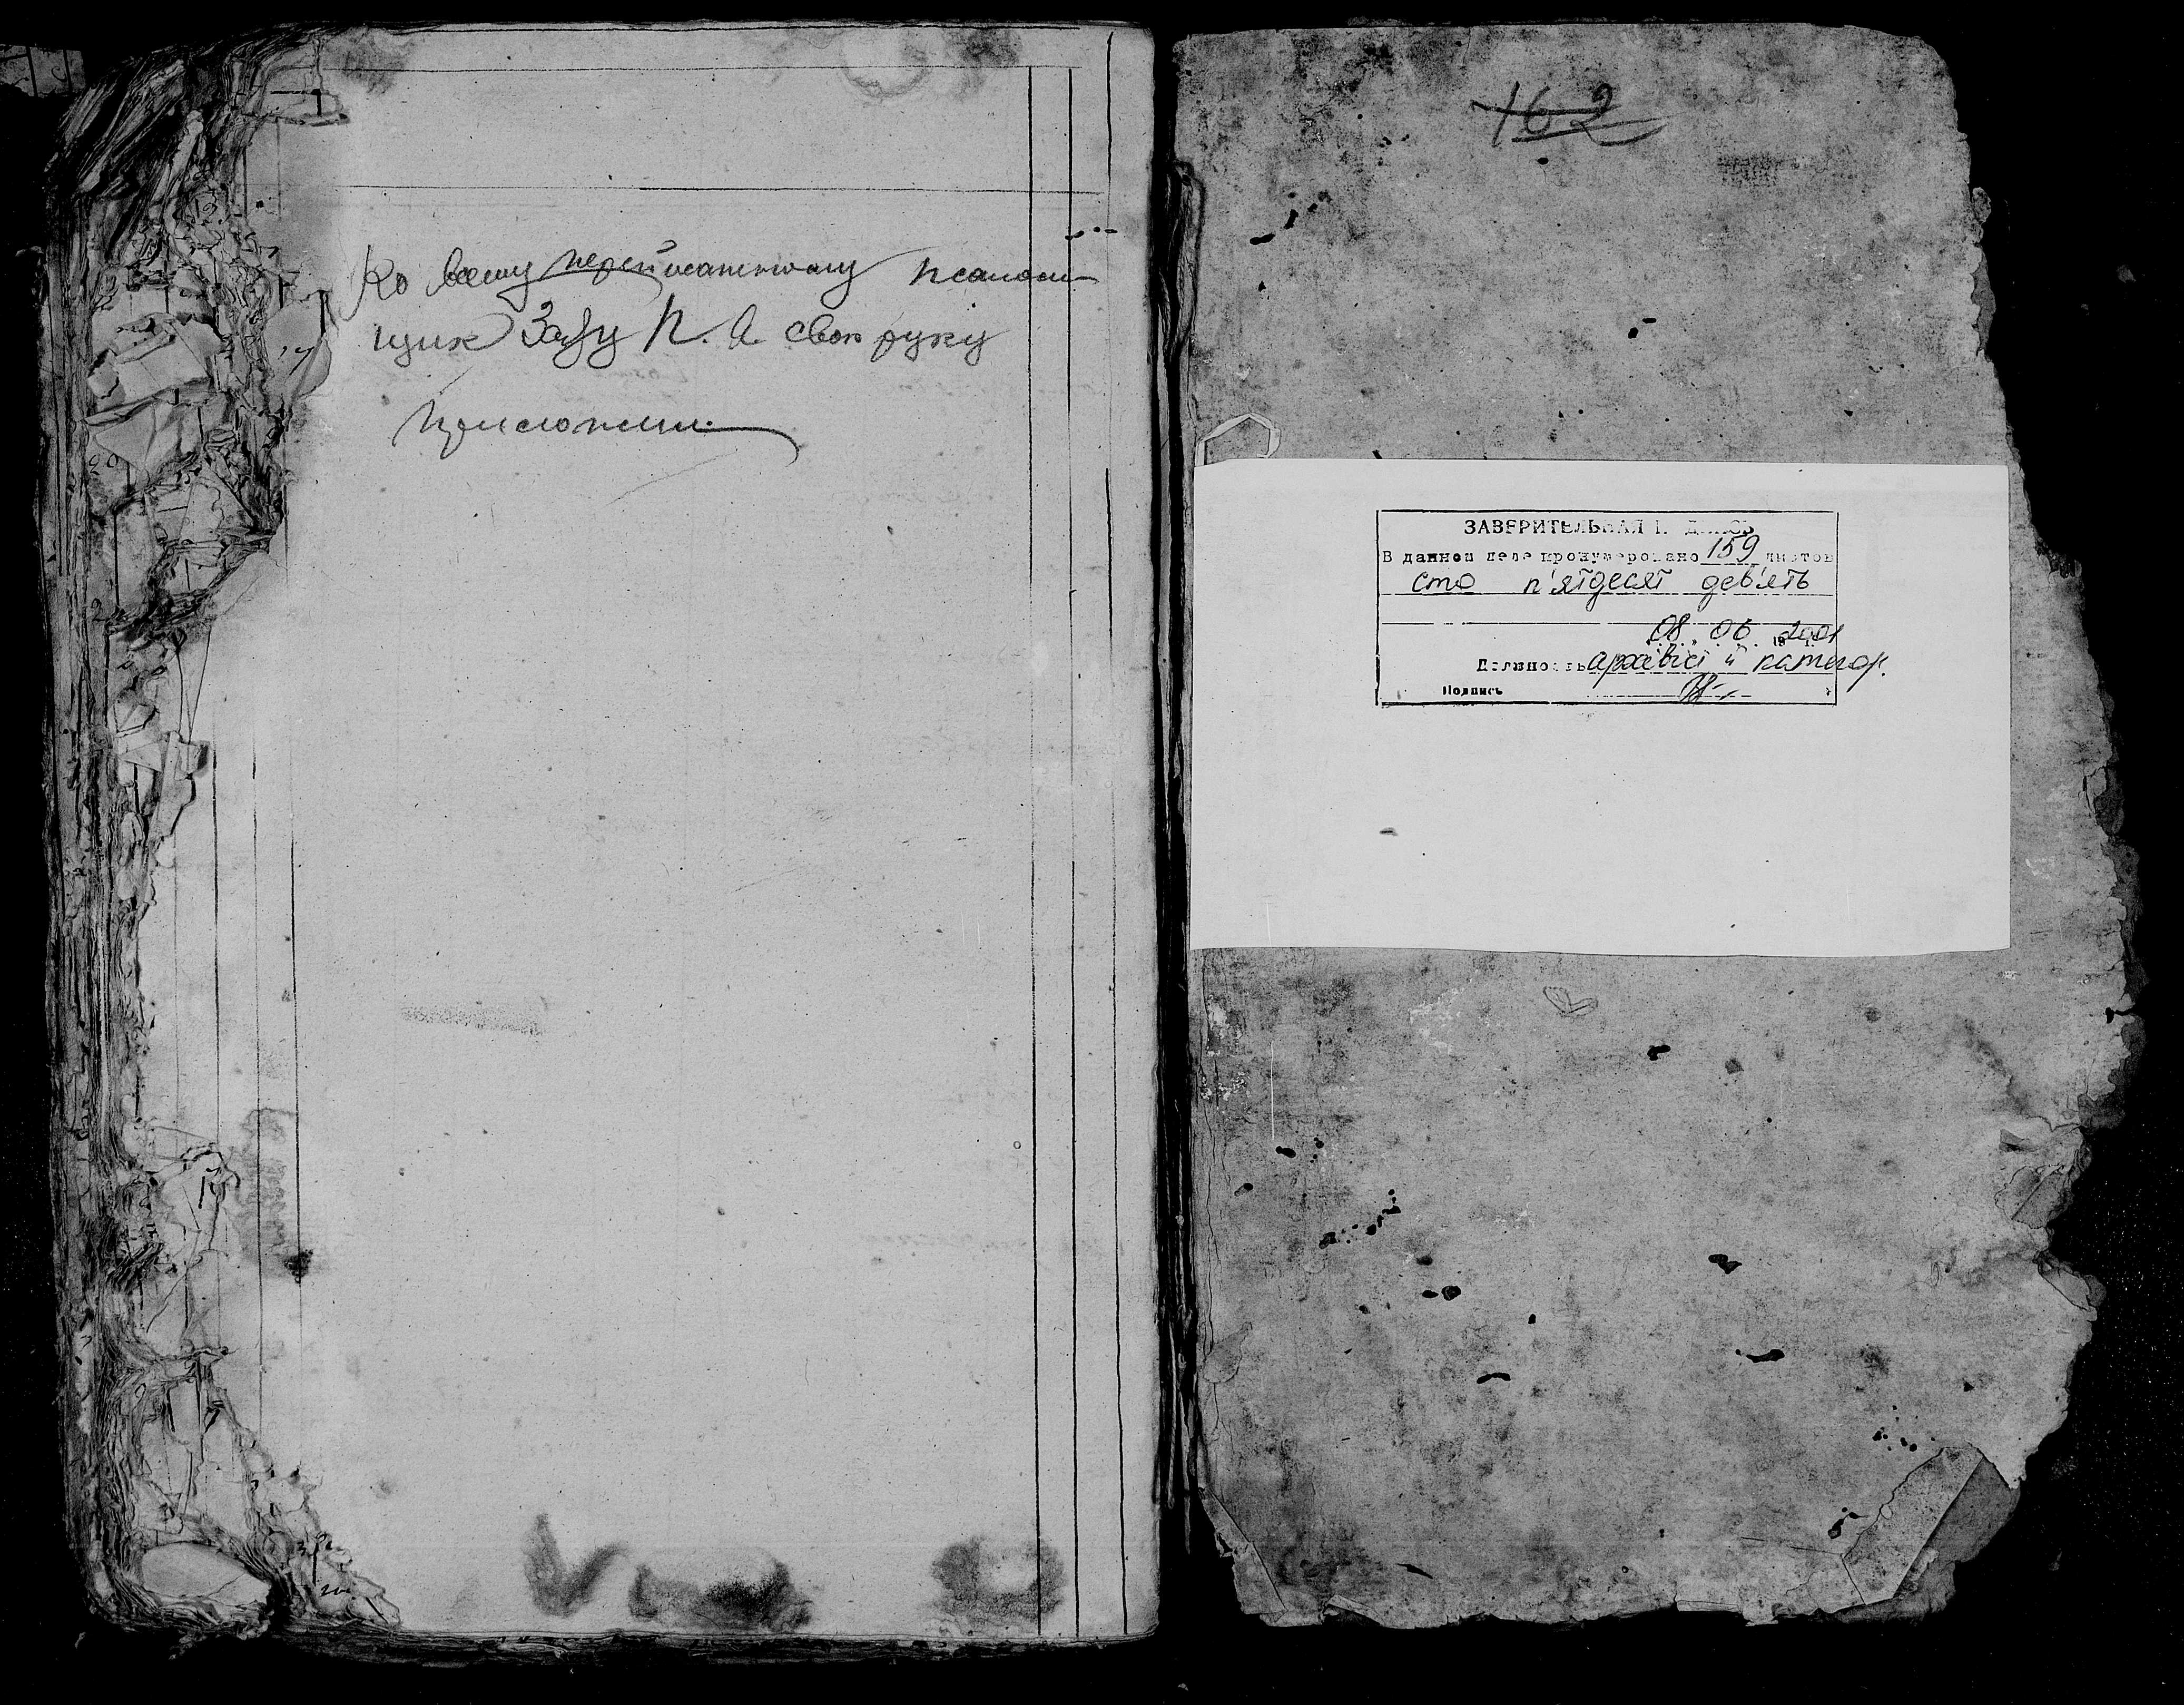 Ко всему переписанному псалом-
щик Зазу П. А. свою руку
приложил.
162
ЗАВЕРИТЕЛЬНАЯ
В данном деле пронумеровано 159 листов
сто п'ятдесят дев'ять
08. 06. 2001
Должность архівіст II категор.
Подпись